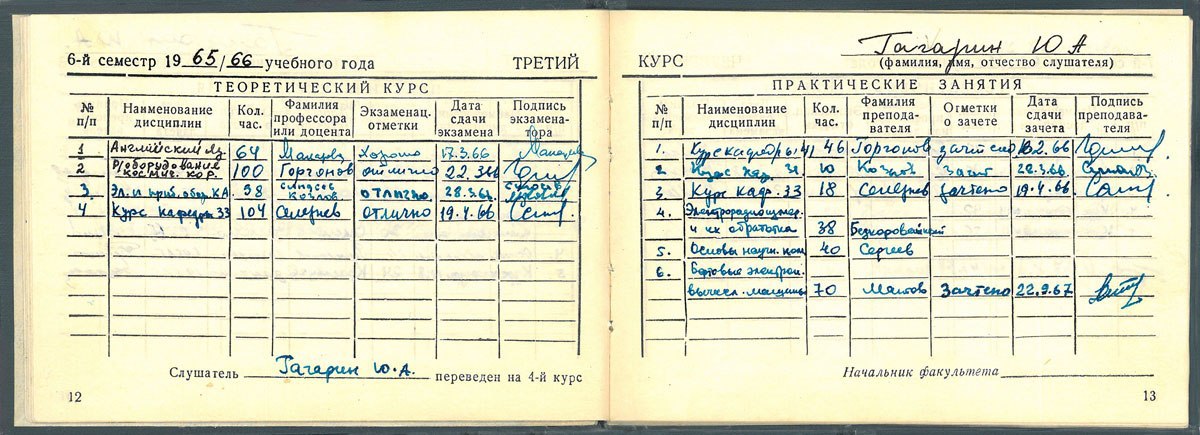 6-й семестр 1965/66 учебного года ТРЕТИЙ
ТЕОРЕТИЧЕСКИЙ КУРС
№ п/п Наименование дисциплин Кол. час. Фамилия профессора или доцента Экзаменац. отметки Дата сдачи экзамена Подпись экзамена-тора
1 Английский яз. 64 Макарова хорошо 17.3.66
2 Р/оборудование космич. кор. 100 Горгонов отлично 22.3.66
3. Эл. и приб. обор. КА. 98 Козлов отлично 28.3.66
4 Курс кафедры 33 104 Селезнев отлично 19.4.66
Слушатель Гагарин Ю.А. переведен на 4-й курс
12
КУРС Гагарин Ю А
(фамилия, имя, отчество слушателя)
ПРАКТИЧЕСКИЕ ЗАНЯТИЯ
№ п/п Наименование дисциплин Кол. час. Фамилия препода-вателя Отметки о зачете Дата сдачи зачета Подпись преподава-теля
1. Курс кафедры 41 46 Горгонов зачтено 18.2.66
2. Курс каф. 31. 10 Козлов зачт 28.3.66
3. Курс кафр. 33 18 Селезнев зачтено 19.4.66
4.
и их обработка 38
5. Основы научн. ком 40 Сергеев
6. Бортовые электрон.
вычисл. машины 70 зачтено 22.9.67
Начальник факультета
13